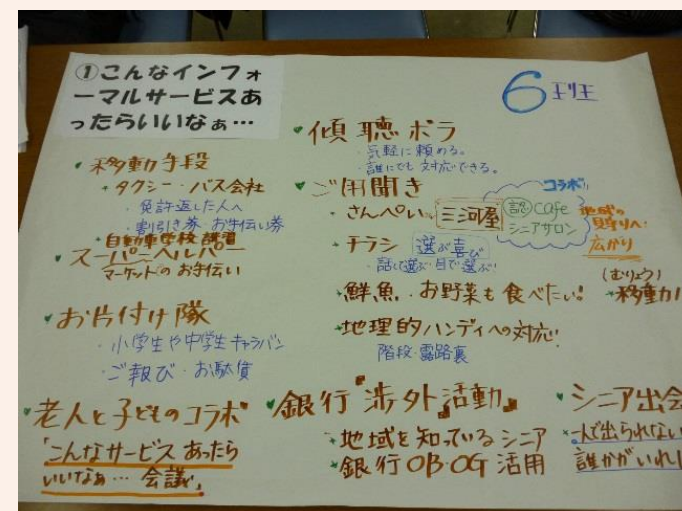 ①こんなインフォ
ーマルサービスあ
ったらいいなぁ…
6班
・移動手段
・タクシー・バス会社
・免許返した人へ
・割引き券・お手伝い券
・自動車学校 講習
・スーパーヘルパー
マーケットのお手伝い
・お片付け隊
・小学生や中学生キャラバン
・ご報び・お駄賃
・老人と子どものコラボ
「こんなサービスあったら
いいなぁ…会議」
・傾聴ボラ
・気軽に頼める。
・誰にでも対応できる。
・ご用聞き
・さんぺい 三河屋
コラボ
認cafe
シニアサロン
地域の
見守りへ
広がり
・チラシ 選ぶ喜び
・話して選ぶ・目で選ぶ!
・鮮魚・お野菜も食べたい!
(むりょう)
・移動カ
・地理的ハンディへの対応!
階段・露路裏
・銀行『渉外活動』
・地域を知っているシニア
・銀行OB・OG活用
・シニア出会
・一人で出られない
誰かがいれ